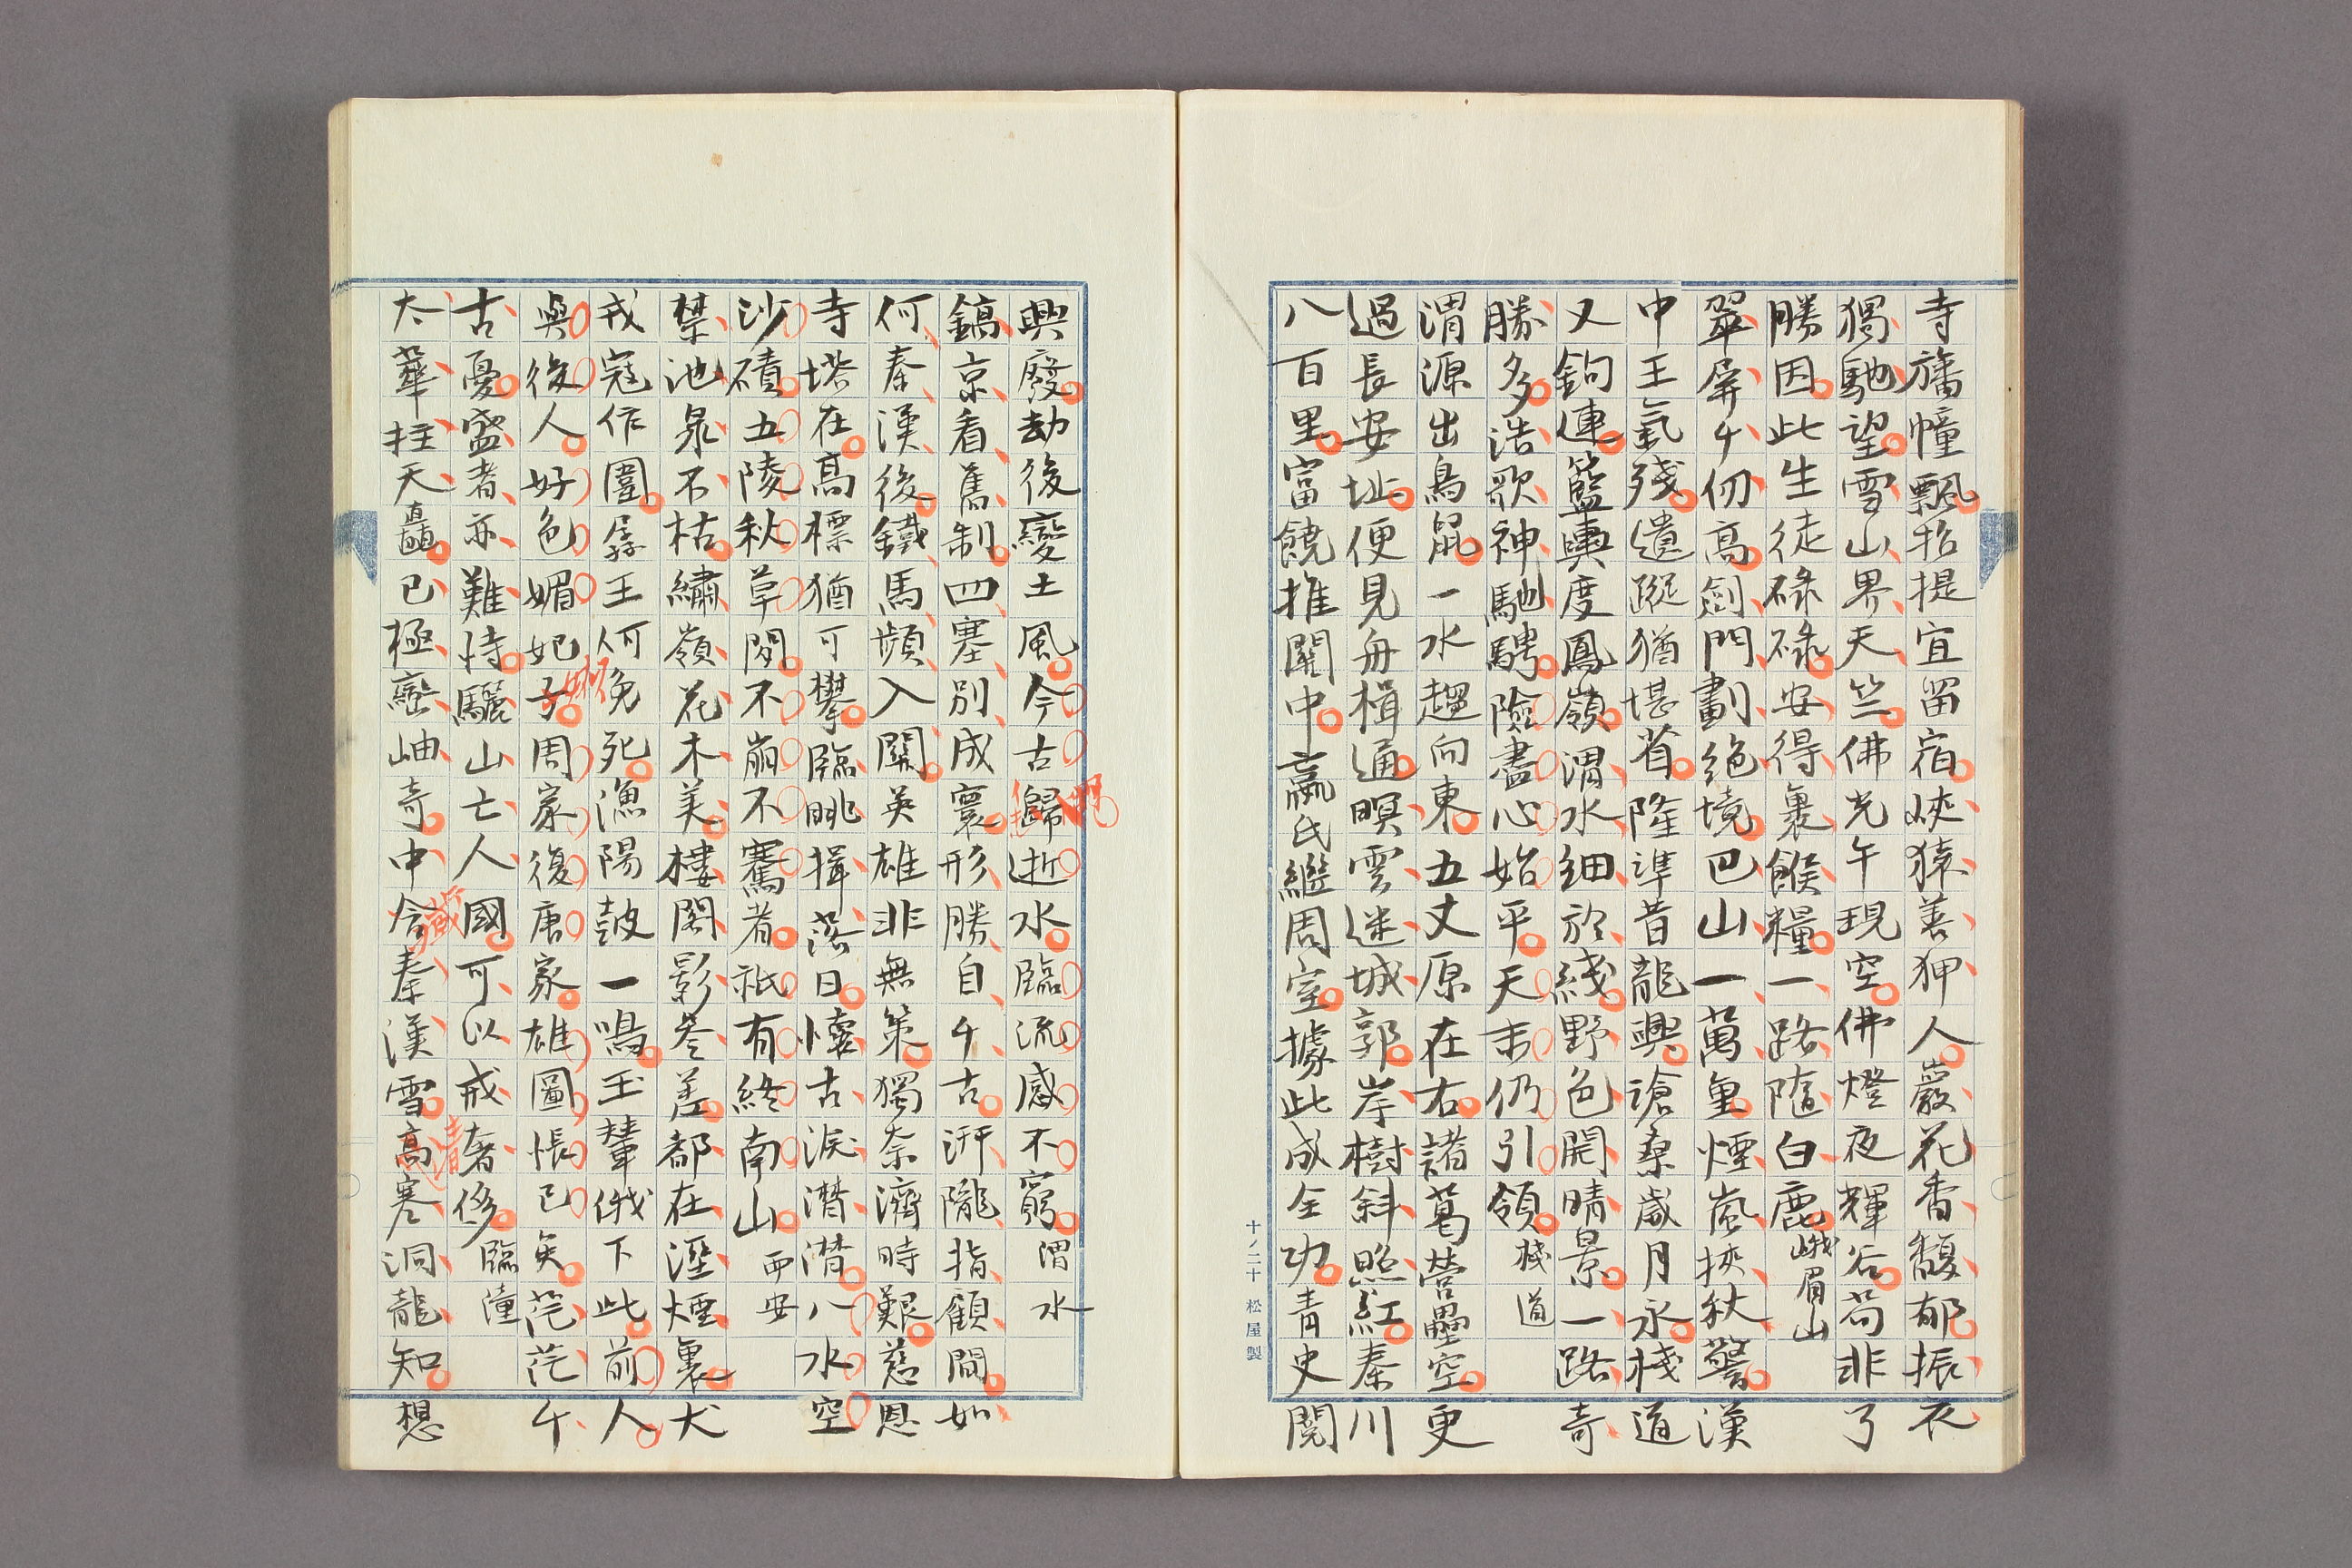 寺旛幢飄招提宜留宿峽猿善狎人巖花香馥郁振衣
獨馳望雪山界天竺佛光午現空佛燈夜輝谷苟非了
勝因此生徒碌碌安得裹餱糧一路隨白鹿峨眉山
翠屏千仞高劍門劃絕境巴山一萬重煙嵐挾秋警漢
中王氣殘遺蹤猶堪省隆準昔龍興滄桑歲月永棧道
又鉤連籃輿度鳳嶺渭水細於綫野色開晴景一路奇
勝多浩歌神馳騁險盡心始平天末仍引領棧道
渭源出鳥鼠一水趨向東五丈原在右諸葛營壘空更
過長安址便見舟楫通暝雲迷城郭岸樹斜照紅秦川
八百里富饒推關中嬴氏繼周室據此成全功青史閱
十ノ二十 松屋製
興廢劫後變土風今古歸逝水臨流感不窮渭水
鎬京看舊制四塞別成寰形勝自千古汧隴指顧間如
何秦漢後鐵馬頻入關英雄非無策獨奈濟時艱慈恩
寺塔在高標猶可攀臨眺揖落日懷古淚潛潸八水空
沙磧五陵秋草閒不崩不騫者祇有終南山西安
禁池泉不枯繡嶺花木美樓閣影參差都在溼煙裏犬
戎寇作圍孱王何免死漁陽鼓一鳴玉輦俄下此前人
與後人好色媚妃子周家復唐家雄圖悵已矣茫茫千
古憂盛者亦難恃驪山亡人國可以戒奢侈臨潼
太華拄天矗已極巒岫奇中含秦漢雪高寒洞龍知想
藏
清